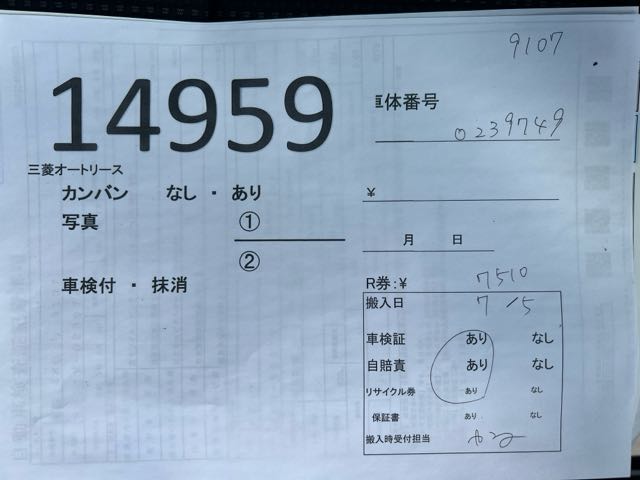 9107
14959
車体番号 0239749
三菱オートリース
カンバン なし ・ あり
¥
写真 ①
月 日
②
車検付 ・ 抹消
R券:¥ 7510
搬入日 7/5
車検証 あり なし
自賠責 あり なし
リサイクル券 あり なし
保証書 あり なし
搬入時受付担当